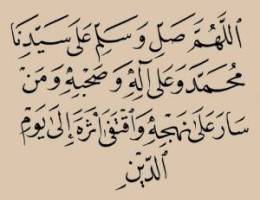 اَللّٰهُمَّ صَلِّ وَسَلِّمْ عَلَى سَيِّدِنَا
مُحَمَّدٍ وَعَلَى آلِهِ وَصَحْبِهِ وَمَنْ
سَارَ عَلَى نَهْجِهِ وَاقْتَفَى أَثَرَهُ إِلَى يَوْمِ
الدِّيْنِ